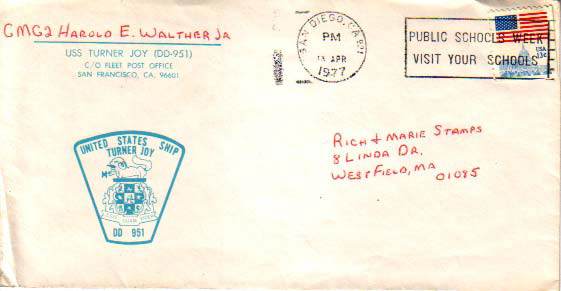 GMG2 HAROLD E. WALTHER JR
USS TURNER JOY (DD-951)
C/O FLEET POST OFFICE
SAN FRANCISCO, CA. 96601
SAN DIEGO, CA
PM
13 APR
1977
PUBLIC SCHOOLS WEEK
VISIT YOUR SCHOOLS
USA
13c
RICH & MARIE STAMPS
8 LINDA DR.
WESTFIELD, MA
01085
UNITED STATES SHIP
TURNER JOY
DD 951